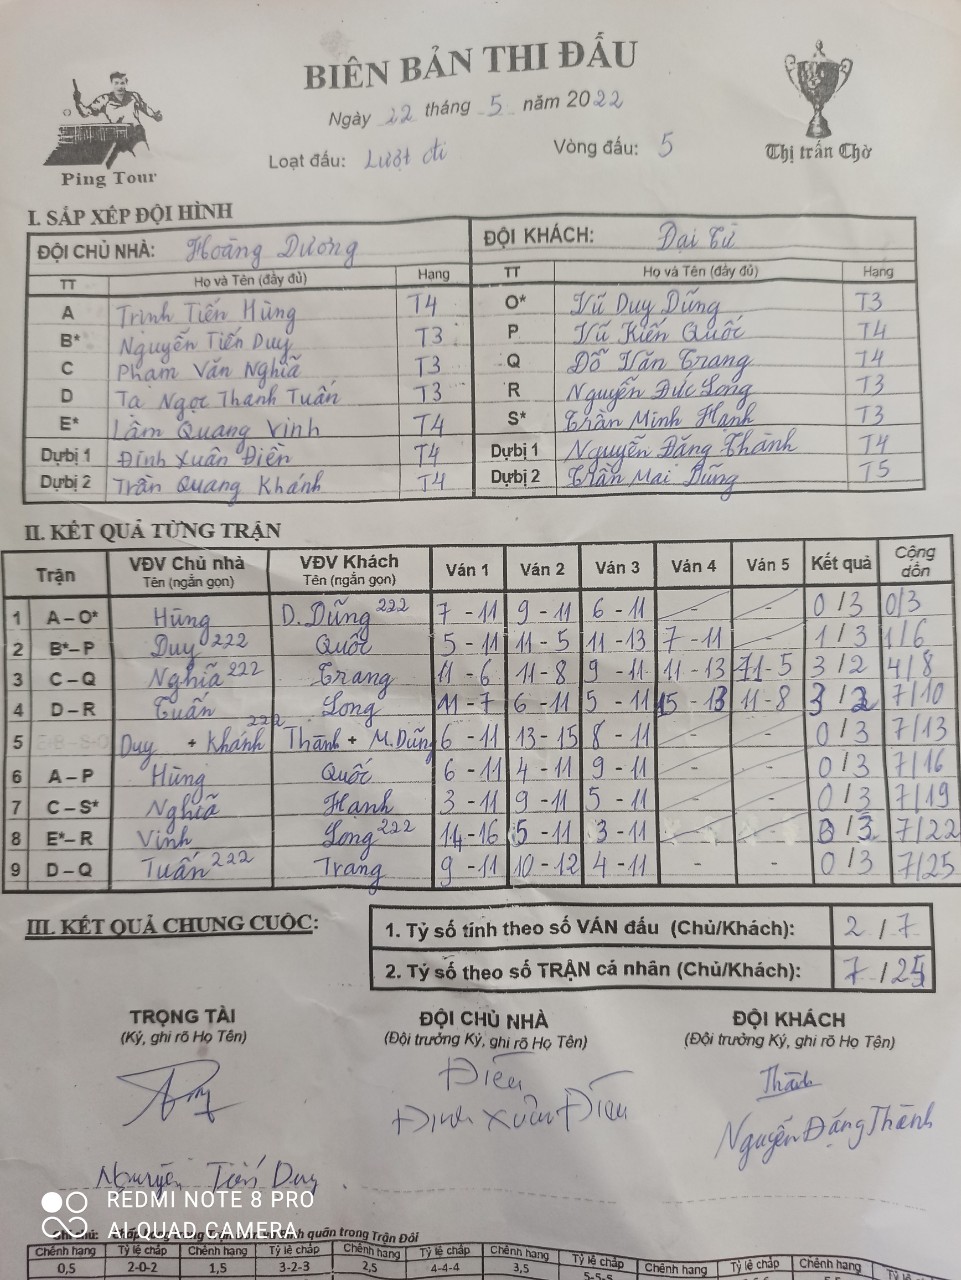 BIÊN BẢN THI ĐẤU
Ngày 22 tháng 5 năm 2022
Loạt đấu: Lượt đi Vòng đấu: 5
Ping Tour
Thị trấn Chờ
I. SẮP XẾP ĐỘI HÌNH
ĐỘI CHỦ NHÀ: Hoàng Dương ĐỘI KHÁCH: Đại Từ
TT Họ và Tên (đầy đủ) Hạng TT Họ và Tên (đầy đủ) Hạng
A Trịnh Tiến Hùng T4 O* Vũ Duy Dũng T3
B* Nguyễn Tiến Duy T3 P Vũ Kiến Quốc T4
C Phạm Văn Nghĩa T3 Q Đỗ Văn Trang T4
D Tạ Ngọc Thanh Tuấn T3 R Nguyễn Đức Long T3
E* Lâm Quang Vinh T4 S* Trần Minh Hạnh T3
Dự bị 1 Đinh Xuân Điền T4 Dự bị 1 Nguyễn Đăng Thành T4
Dự bị 2 Trần Quang Khánh T4 Dự bị 2 Trần Mai Dũng T5
II. KẾT QUẢ TỪNG TRẬN
Trận VĐV Chủ nhà Tên (ngắn gọn) VĐV Khách Tên (ngắn gọn) Ván 1 Ván 2 Ván 3 Ván 4 Ván 5 Kết quả Cộng dồn
1 A – O* Hùng D. Dũng 222 7 - 11 9 - 11 6 - 11 - - 0 / 3 0/3
2 B* – P Duy 222 Quốc 5 - 11 11 - 5 11 - 13 7 - 11 - 1 / 3 1/6
3 C – Q Nghĩa 222 Trang 11 - 6 11 - 8 9 - 11 11 - 13 71 - 5 3 / 2 4/8
4 D – R Tuấn Long 11 - 7 6 - 11 5 - 11 15 - 13 11 - 8 3 / 2 7/10
5 Duy + Khánh 222 Thành + M. Dũng 6 - 11 13 - 15 8 - 11 - - 0 / 3 7/13
6 A – P Hùng Quốc 6 - 11 4 - 11 9 - 11 - - 0 / 3 7/16
7 C – S* Nghĩa Hạnh 3 - 11 9 - 11 5 - 11 - - 0 / 3 7/19
8 E* – R Vinh Long 222 14 - 16 5 - 11 3 - 11 - - 0 / 3 7/22
9 D – Q Tuấn 222 Trang 9 - 11 10 - 12 4 - 11 - - 0 / 3 7/25
III. KẾT QUẢ CHUNG CUỘC:
1. Tỷ số tính theo số VÁN đấu (Chủ/Khách): 2 / 7
2. Tỷ số theo số TRẬN cá nhân (Chủ/Khách): 7 / 25
TRỌNG TÀI ĐỘI CHỦ NHÀ ĐỘI KHÁCH
(Ký, ghi rõ Họ Tên) (Đội trưởng Ký, ghi rõ Họ Tên) (Đội trưởng Ký, ghi rõ Họ Tên)
Điền Thành
Đinh Xuân Điền Nguyễn Đăng Thành
Nguyễn Tiến Duy
REDMI NOTE 8 PRO
AI QUAD CAMERA
quân trong Trận Đôi
Chênh hạng Tỷ lệ chấp Chênh hạng Tỷ lệ chấp Chênh hạng Tỷ lệ chấp Chênh hạng Tỷ lệ chấp Chênh hạng Tỷ lệ chấp Chênh hạng
0,5 2-0-2 1,5 3-2-3 2,5 4-4-4 3,5 5-5-5